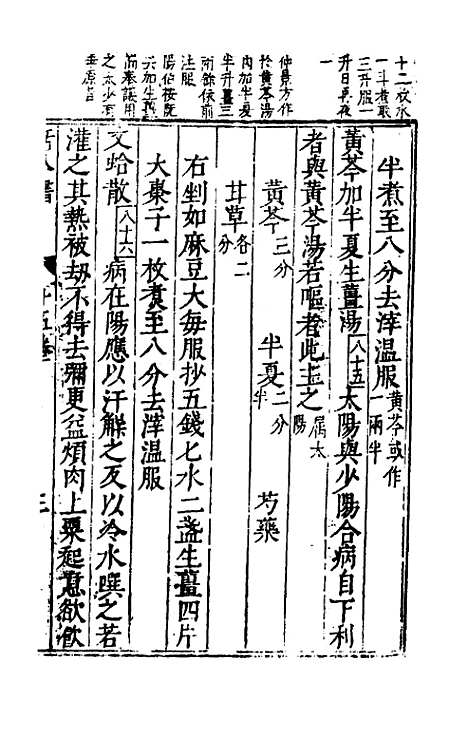 十二枚水
一斗煮取
三升服一
升日再夜
一
仲景方作
於黄芩湯
内加半夏
半升薑三
兩餘依前
法服
陽伯按既
云加生薑
之太少有
半煮至八分去滓温服黄芩或作一兩半
黄芩加半夏生薑湯八十五太陽與少陽合病自下利
者與黄芩湯若嘔者此主之屬太陽
黄芩三分 半夏二分半 芍藥
甘草各二分
右剉如麻豆大每服抄五錢匕水二盞生薑四片
大棗子一枚煮至八分去滓温服
文蛤散八十六病在陽應以汗解之反以冷水潠之若
灌之其熱被劫不得去彌更益煩肉上粟起意欲飲